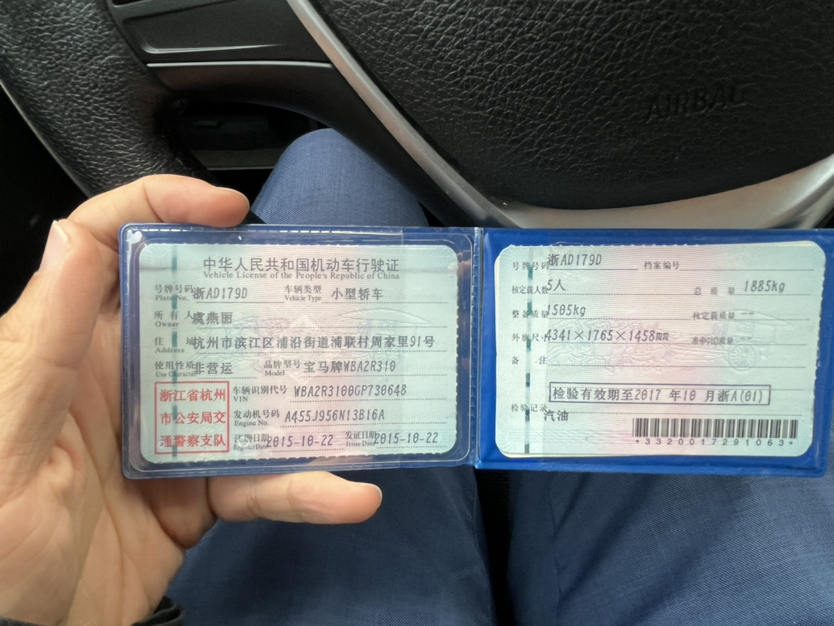 AIRBAG
中华人民共和国机动车行驶证
Vehicle License of the People's Republic of China
号牌号码 浙AD179D 车辆类型 小型轿车
Plate No. Vehicle Type
所有人 虞燕丽
Owner
住址 杭州市滨江区浦沿街道浦联村周家里91号
Address
使用性质 非营运 品牌型号 宝马牌WBA2R310
Use Character Model
浙江省杭州
市公安局交
通警察支队
车辆识别代号 WBA2R3100GP730648
VIN
发动机号码 A455J956N13B16A
Engine No.
注册日期 2015-10-22 发证日期 2015-10-22
Register Date Issue Date
号牌号码 浙AD179D 档案编号
核定载人数 5人 总质量 1885kg
整备质量 1505kg 核定载质量 --
外廓尺寸 4341×1765×1458mm 准牵引总质量 --
备注
检验有效期至2017年10月浙A(01)
检验记录
汽油
*3320017291063*